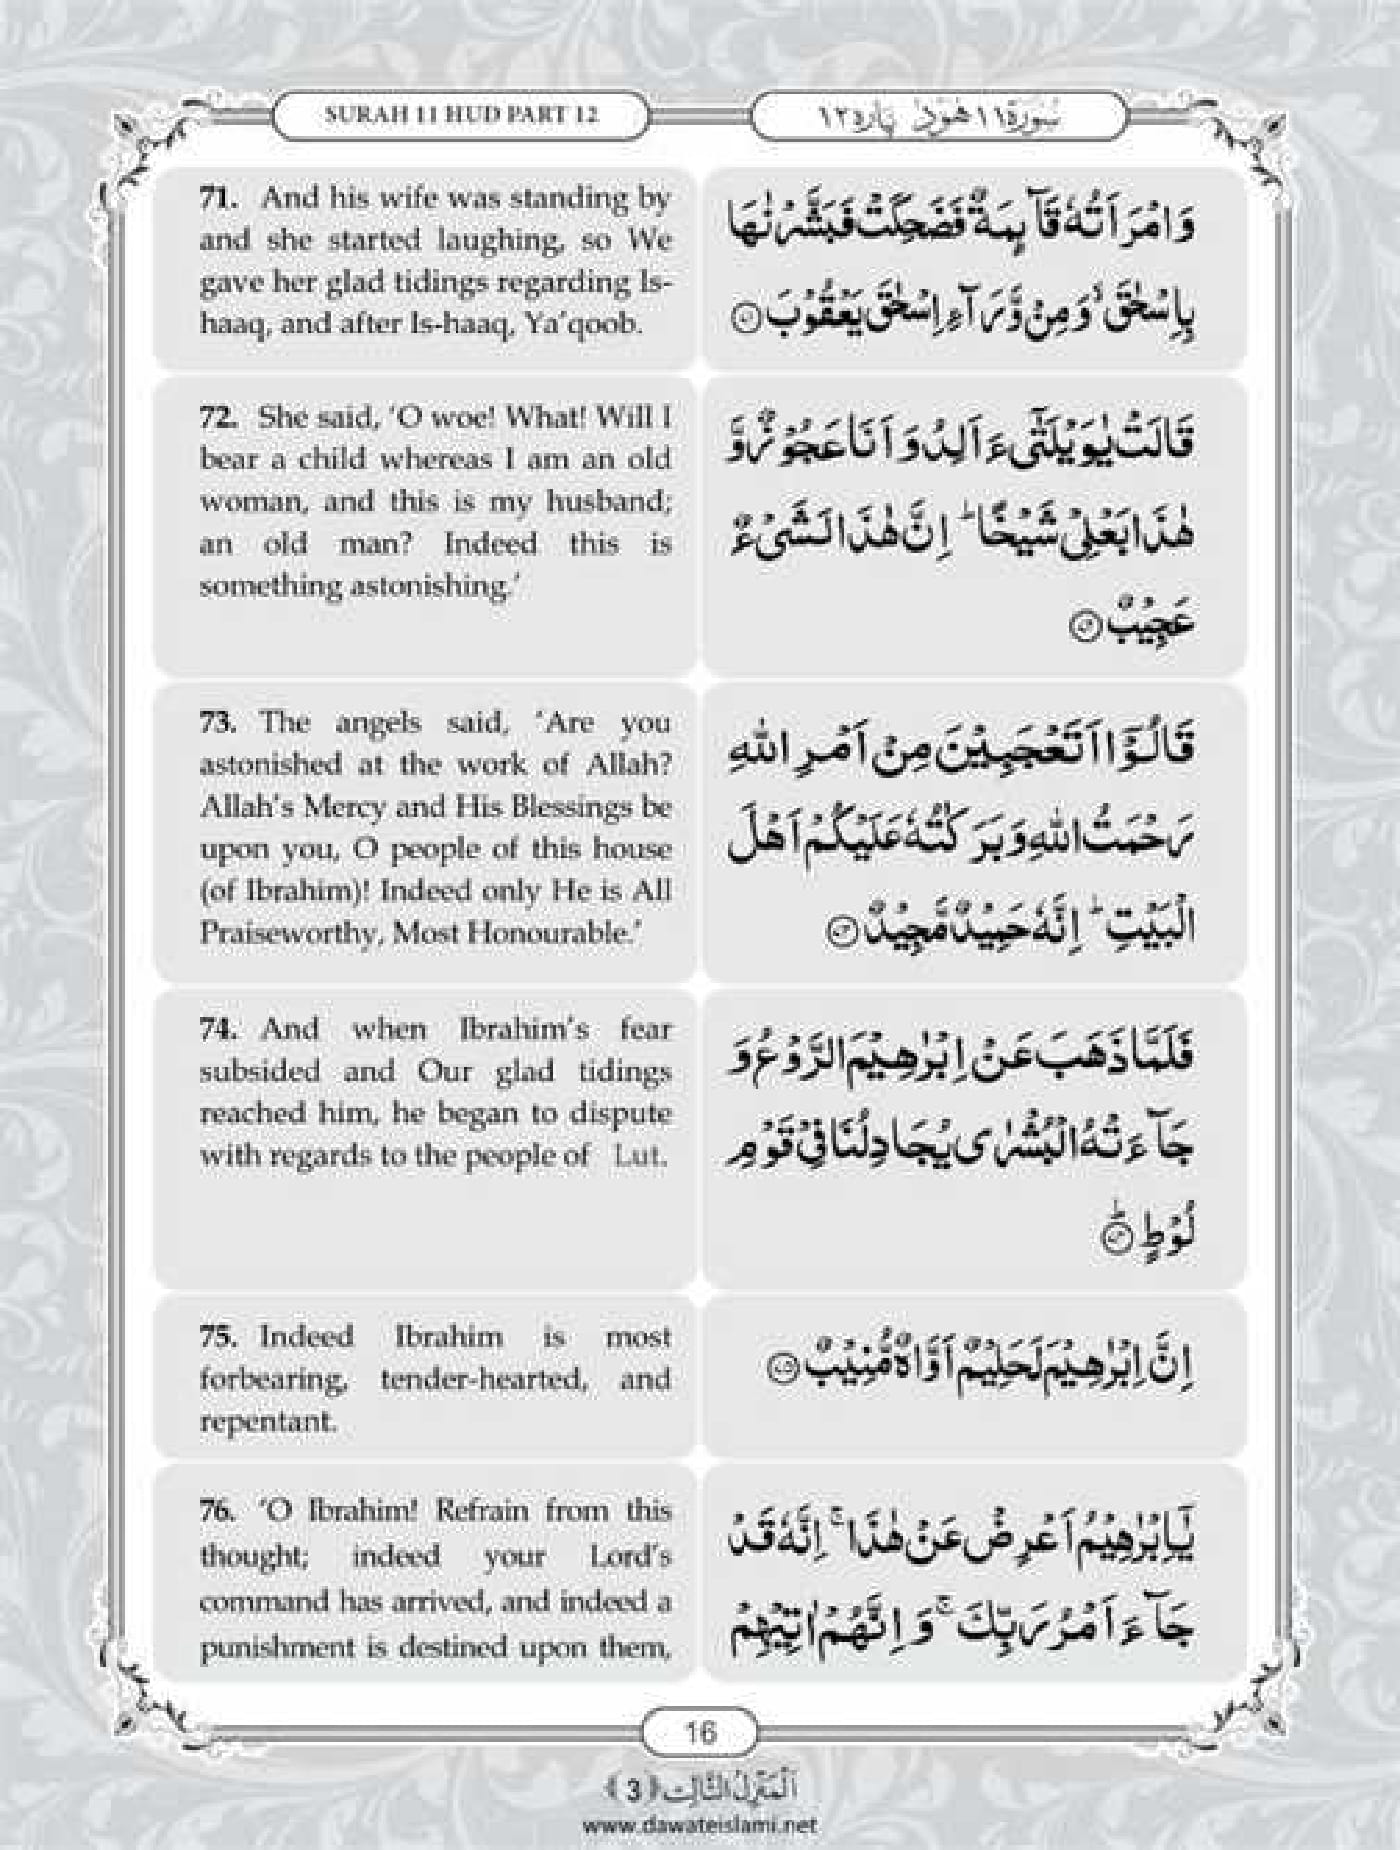 SURAH 11 HUD PART 12
سُورَة ١١ هُود پاره ١٢
71. And his wife was standing by
and she started laughing, so We
gave her glad tidings regarding Is-
haaq, and after Is-haaq, Ya'qoob.
وَامْرَاَتُهٗ قَآىِٕمَةٌ فَضَحِكَتْ فَبَشَّرْنٰهَا
بِاِسْحٰقَ ۙ وَمِنْ وَّرَآءِ اِسْحٰقَ يَعْقُوْبَ ۝۷۱
72. She said, 'O woe! What! Will I
bear a child whereas I am an old
woman, and this is my husband;
an old man? Indeed this is
something astonishing.'
قَالَتْ يٰوَيْلَتٰٓى ءَاَلِدُ وَاَنَا عَجُوْزٌ وَّ
هٰذَا بَعْلِيْ شَيْخًا ؕ اِنَّ هٰذَا لَشَيْءٌ
عَجِيْبٌ ۝۷۲
73. The angels said, 'Are you
astonished at the work of Allah?
Allah's Mercy and His Blessings be
upon you, O people of this house
(of Ibrahim)! Indeed only He is All
Praiseworthy, Most Honourable.'
قَالُوْٓا اَتَعْجَبِيْنَ مِنْ اَمْرِ اللّٰهِ
رَحْمَتُ اللّٰهِ وَبَرَكٰتُهٗ عَلَيْكُمْ اَهْلَ
الْبَيْتِ ؕ اِنَّهٗ حَمِيْدٌ مَّجِيْدٌ ۝۷۳
74. And when Ibrahim's fear
subsided and Our glad tidings
reached him, he began to dispute
with regards to the people of Lut.
فَلَمَّا ذَهَبَ عَنْ اِبْرٰهِيْمَ الرَّوْعُ وَ
جَآءَتْهُ الْبُشْرٰى يُجَادِلُنَا فِيْ قَوْمِ
لُوْطٍ ؕ ۝۷۴
75. Indeed Ibrahim is most
forbearing, tender-hearted, and
repentant.
اِنَّ اِبْرٰهِيْمَ لَحَلِيْمٌ اَوَّاهٌ مُّنِيْبٌ ۝۷۵
76. 'O Ibrahim! Refrain from this
thought; indeed your Lord's
command has arrived, and indeed a
punishment is destined upon them,
يٰٓاِبْرٰهِيْمُ اَعْرِضْ عَنْ هٰذَا ۚ اِنَّهٗ قَدْ
جَآءَ اَمْرُ رَبِّكَ ۚ وَاِنَّهُمْ اٰتِيْهِمْ
16
اَلْمَنْزِلُ الثَّالِث ﴿3﴾
www.dawateislami.net